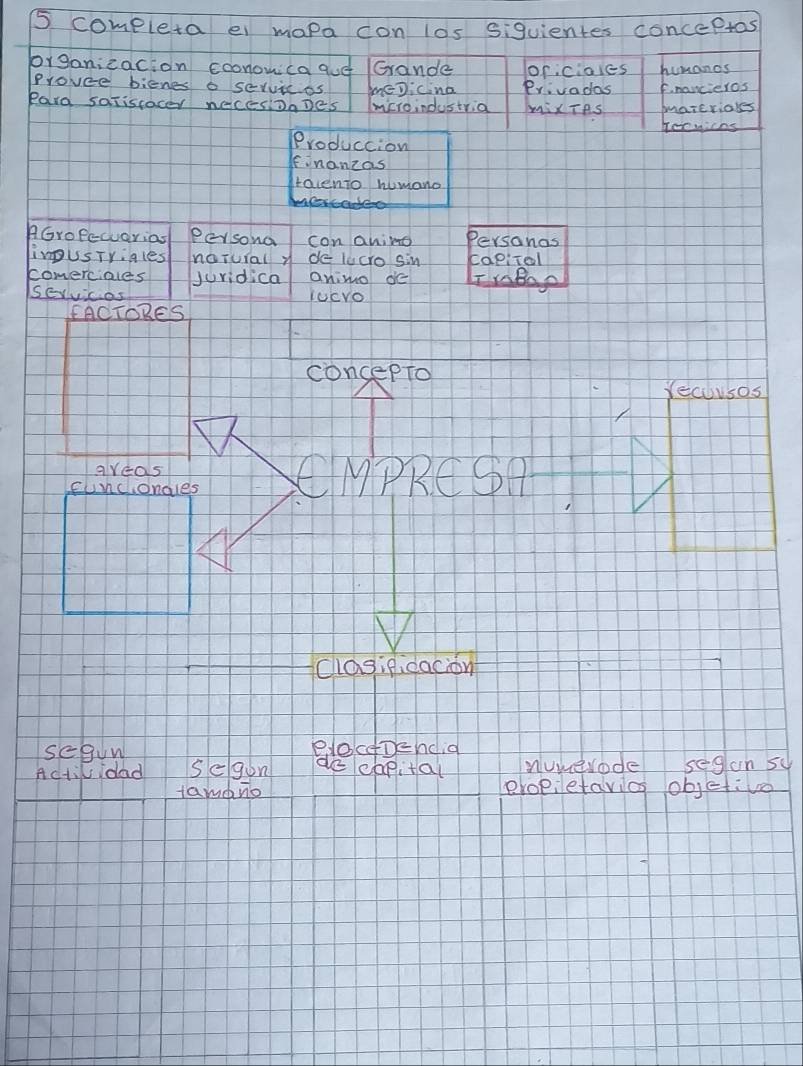 5 completa el mapa con los siguientes conceptos
organizacion economica que
provee bienes o servicios
para satisfacer necesidades
Grande
meDicina
microindustria
oficiales
Privadas
mixtas
humanos
financieros
materiales
tecnicos
Produccion
finanzas
talento humano
mercadeo
AGropecuarias
inDUSTriales
comerciales
servicios
Persona
natural y
juridica
con animo
de lucro sin
animo de
lucro
Personas
capital
Trabajo
FACTORES
concepto
recursos
areas
funcionales
EMPRESA
Clasificación
segun
Actividad
segun
tamaño
procedencia
de capital
numero de
propietarios
segun su
objetivo